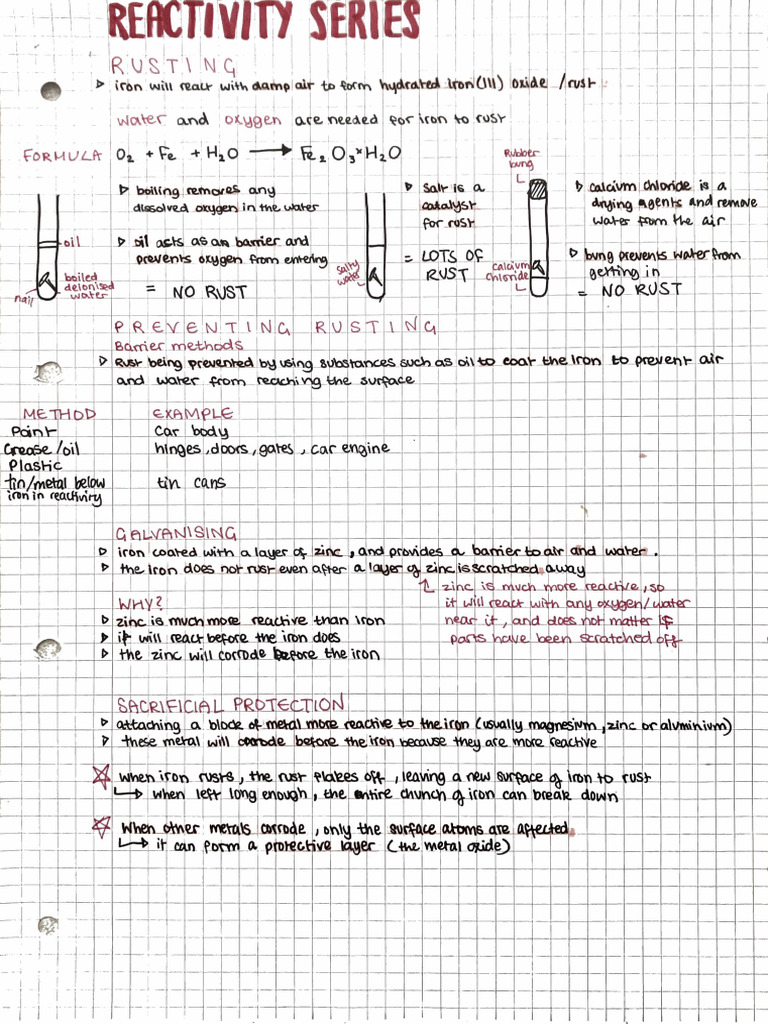 REACTIVITY SERIES
RUSTING
▷ iron will react with damp air to form hydrated iron(III) oxide /rust
water and oxygen are needed for iron to rust
FORMULA O₂ + Fe + H₂O ⟶ Fe₂O₃ˣH₂O
▷ boiling removes any
dissolved oxygen in the water
▷ oil acts as an barrier and
prevents oxygen from entering
= NO RUST
oil
boiled
deionised
water
nail
▷ salt is a
catalyst
for rust
= LOTS OF
RUST
salty
water
Rubber
bung
calcium
chloride
▷ calcium chloride is a
drying agents and remove
water from the air
▷ bung prevents water from
getting in
= NO RUST
PREVENTING RUSTING
Barrier methods
▷ Rust being prevented by using substances such as oil to coat the iron to prevent air
and water from reaching the surface
METHOD EXAMPLE
Paint Car body
Grease/oil hinges, doors, gates, car engine
Plastic
tin/metal below tin cans
iron in reactivity
GALVANISING
▷ iron coated with a layer of zinc, and provides a barrier to air and water.
▷ the iron does not rust even after a layer of zinc is scratched away
↑ zinc is much more reactive, so
it will react with any oxygen/water
near it, and does not matter if
parts have been scratched off
WHY?
▷ zinc is much more reactive than iron
▷ it will react before the iron does
▷ the zinc will corrode before the iron
SACRIFICIAL PROTECTION
▷ attaching a block of metal more reactive to the iron (usually magnesium, zinc or aluminium)
▷ these metal will corrode before the iron because they are more reactive
☆ When iron rusts, the rust flakes off, leaving a new surface of iron to rust
↳ when left long enough, the entire chunch of iron can break down
☆ When other metals corrode, only the surface atoms are affected.
↳ it can form a protective layer (the metal oxide)